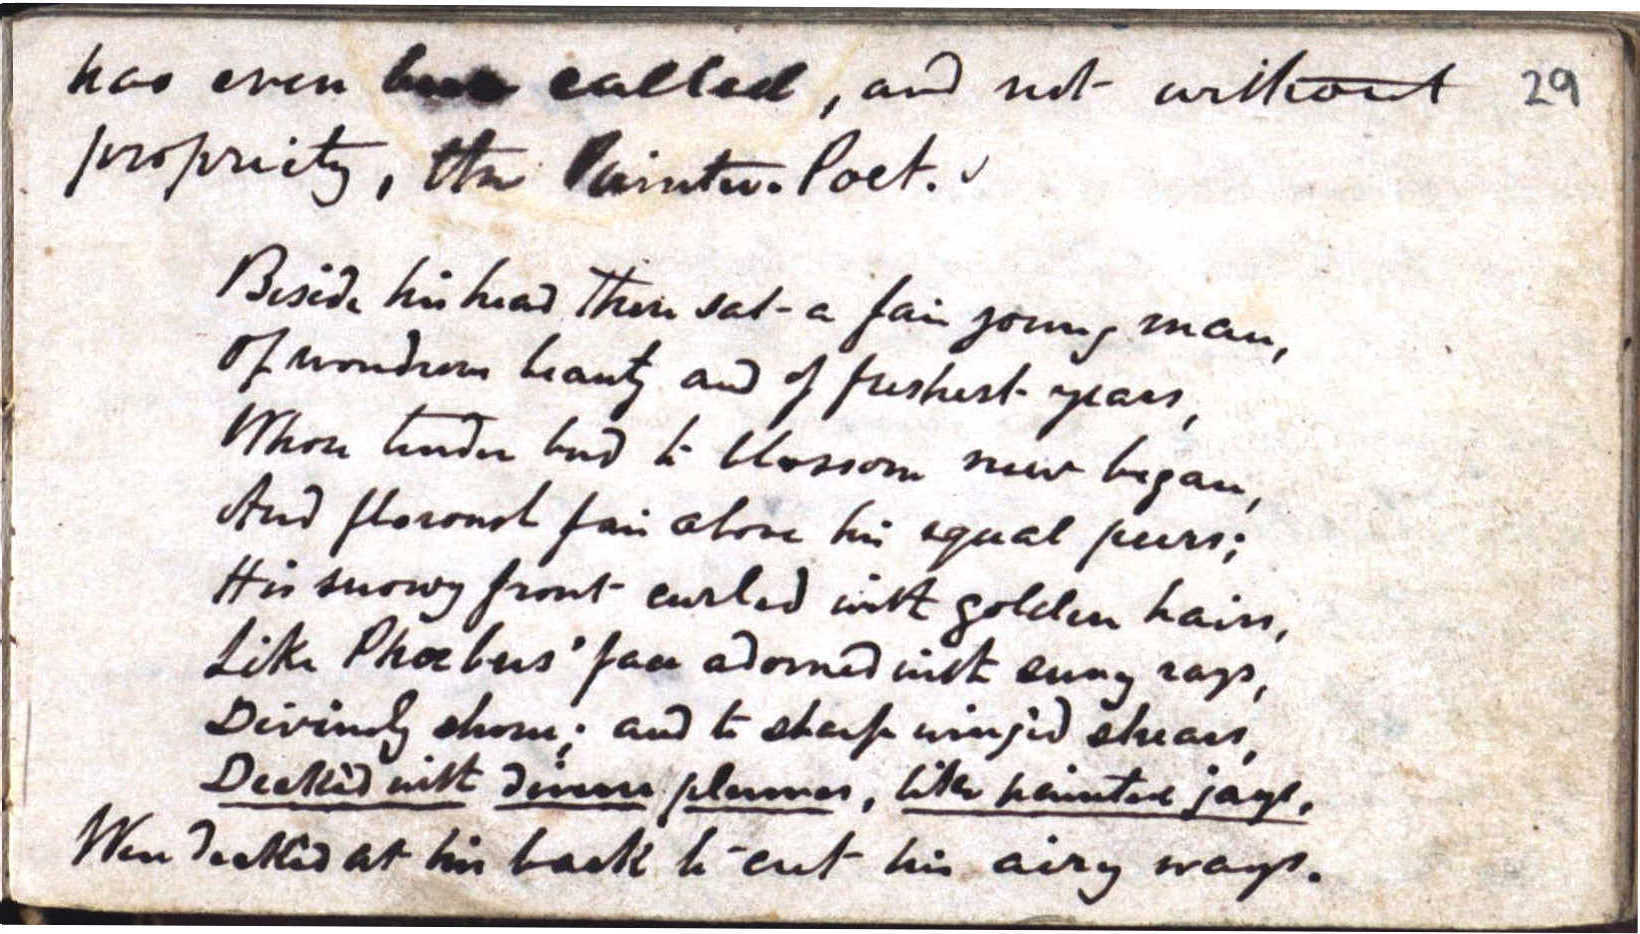 has even been called, and not without 29
propriety, the Painter-Poet.
Beside his head there sat a fair young man,
Of wondrous beauty and of freshest years,
Whose tender bud to blossom new began,
And flourish fair above his equal peers;
His snowy front curled with golden hairs,
Like Phœbus' face adorned with sunny rays,
Divinely shone; and to sharp winged shears,
Decked with diverse plumes, like painted jays,
Were decked at his back to cut his airy ways.